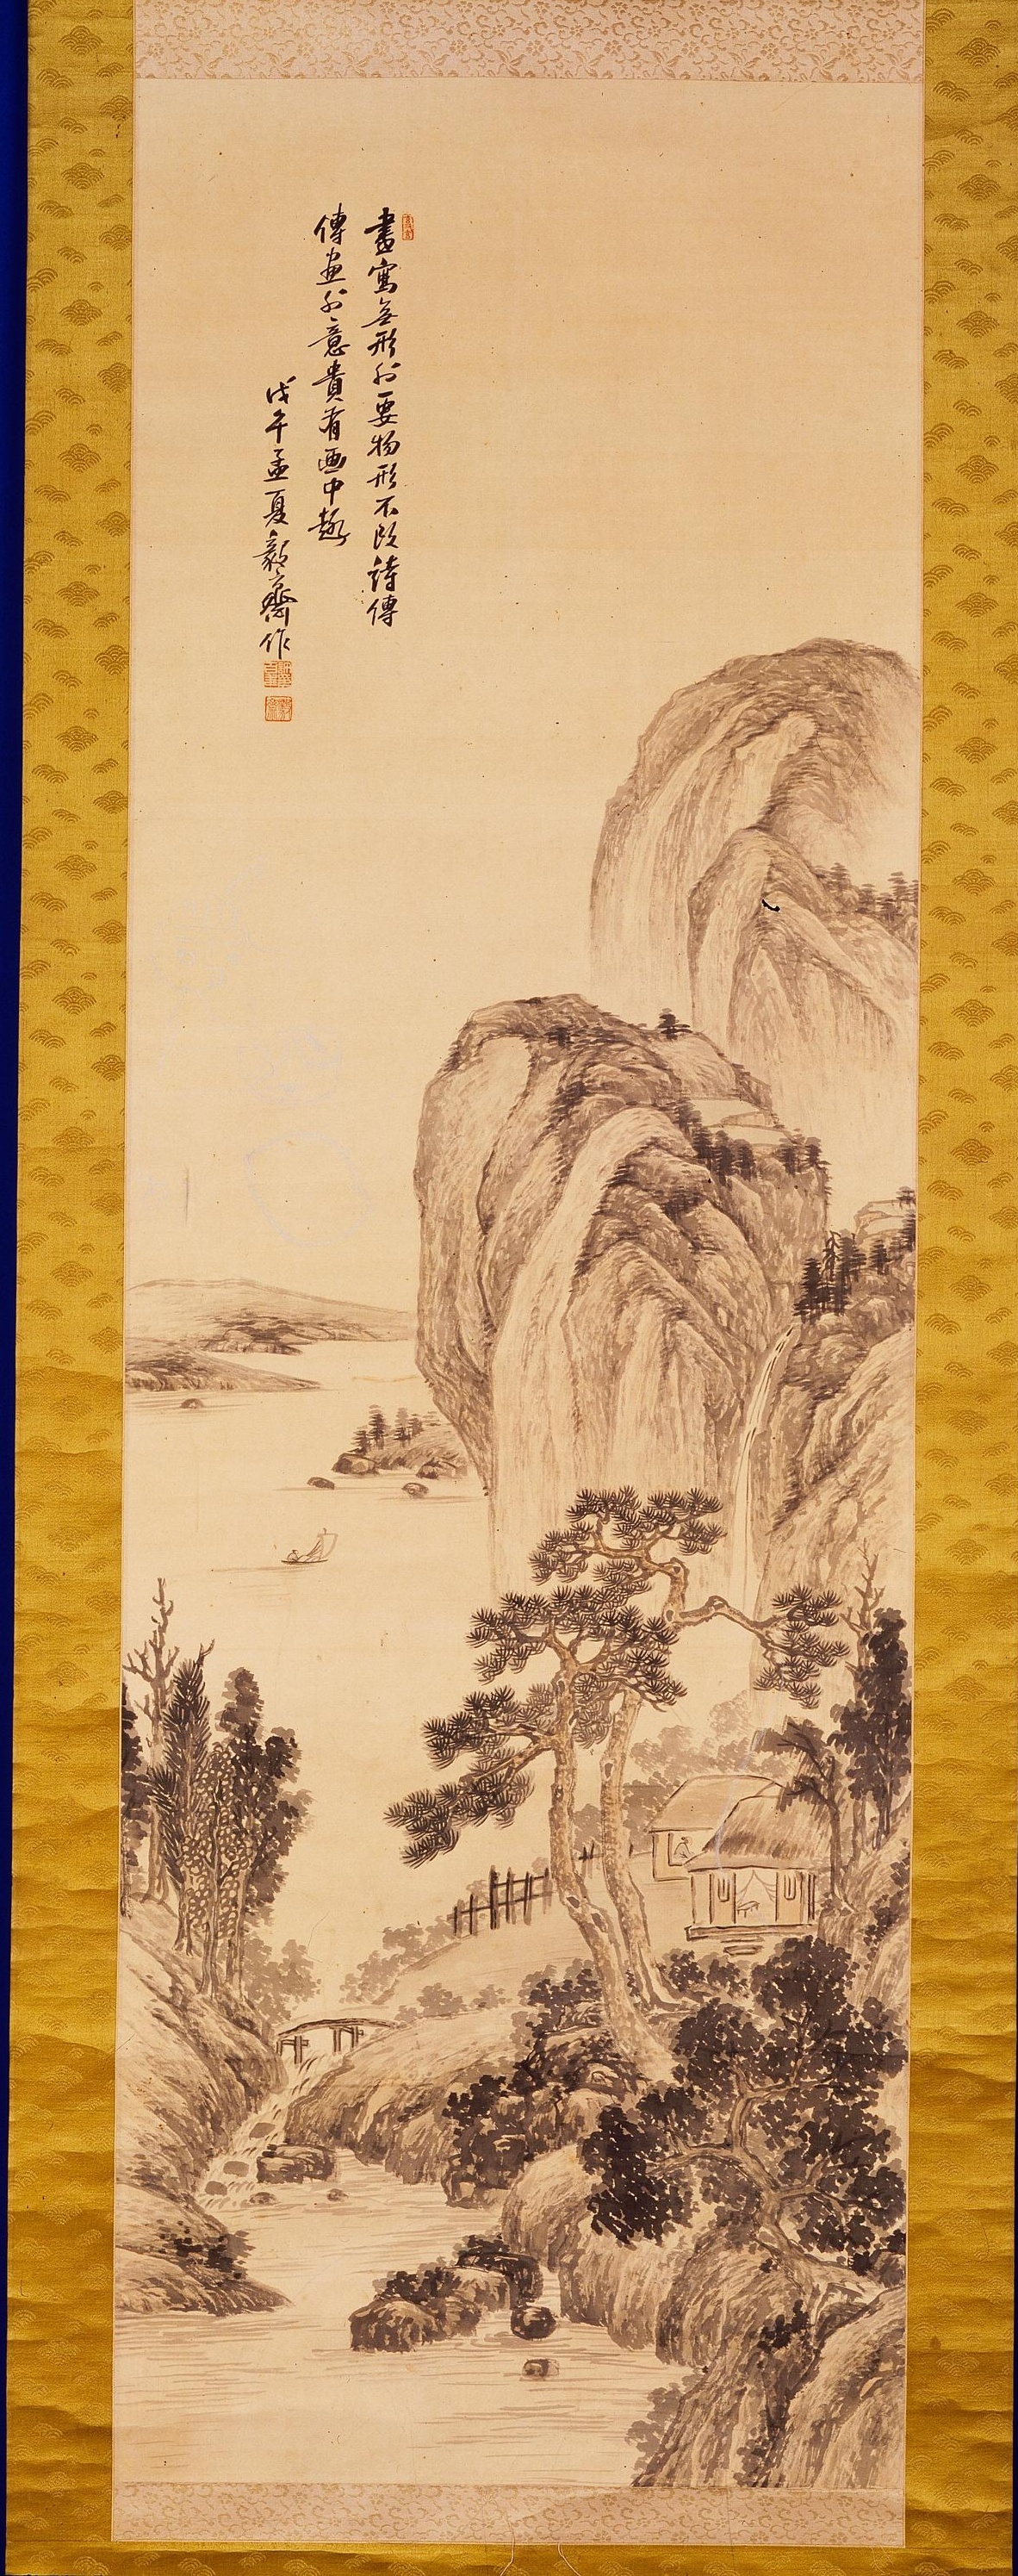 畫寫無形外要物形不改詩傳
傳画外意貴有画中趣
戊午孟夏毅齋作